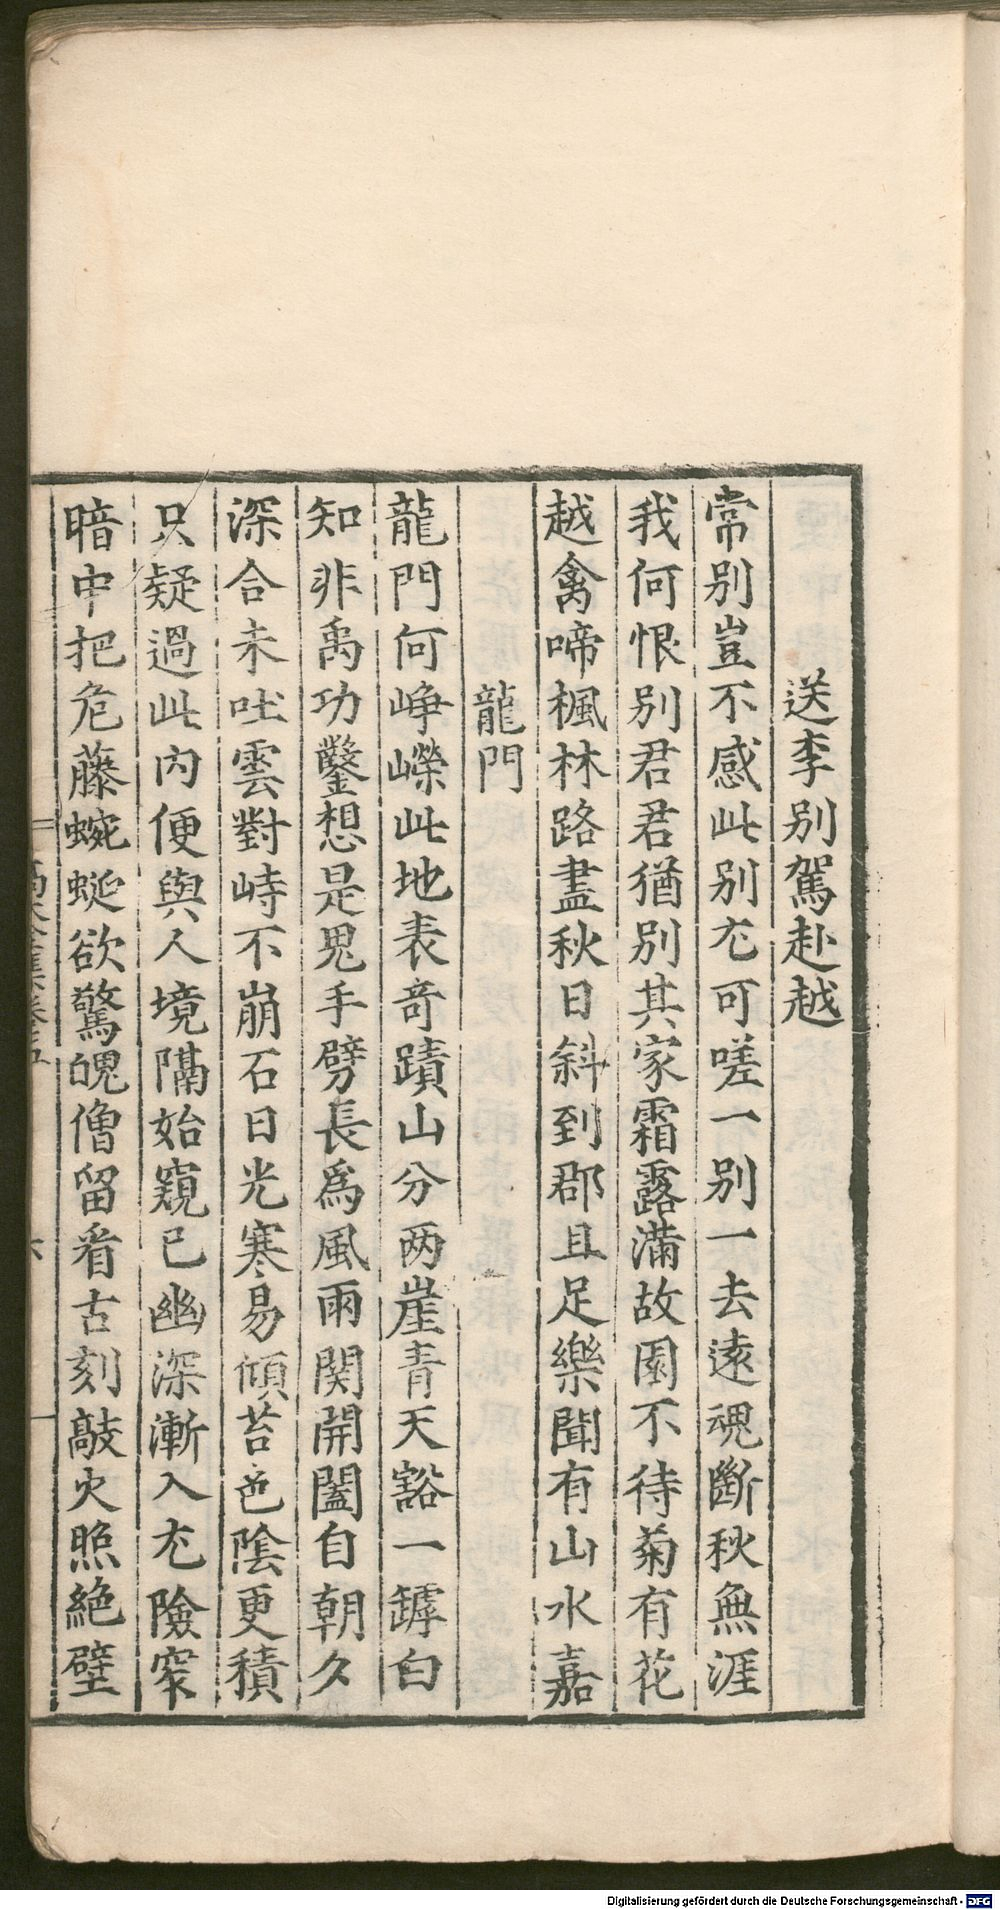 送李別駕赴越
常別豈不感此別尤可嗟一別一去遠魂斷秋無涯
我何恨別君君猶別其家霜露滿故園不待菊有花
越禽啼楓林路盡秋日斜到郡且足樂聞有山水嘉
龍門
龍門何崢嶸此地表奇蹟山分两崖青天豁一罅白
知非禹功鑿想是鬼手劈長為風雨関開闔自朝久
深合未吐雲對峙不崩石日光寒易傾苔色陰更積
只疑過此內便與人境隔始窺已幽深漸入尤險窄
暗中把危藤蜿蜒欲驚魄僧留看古刻敲火照絕壁
六
Digitalisierung gefördert durch die Deutsche Forschungsgemeinschaft - DFG